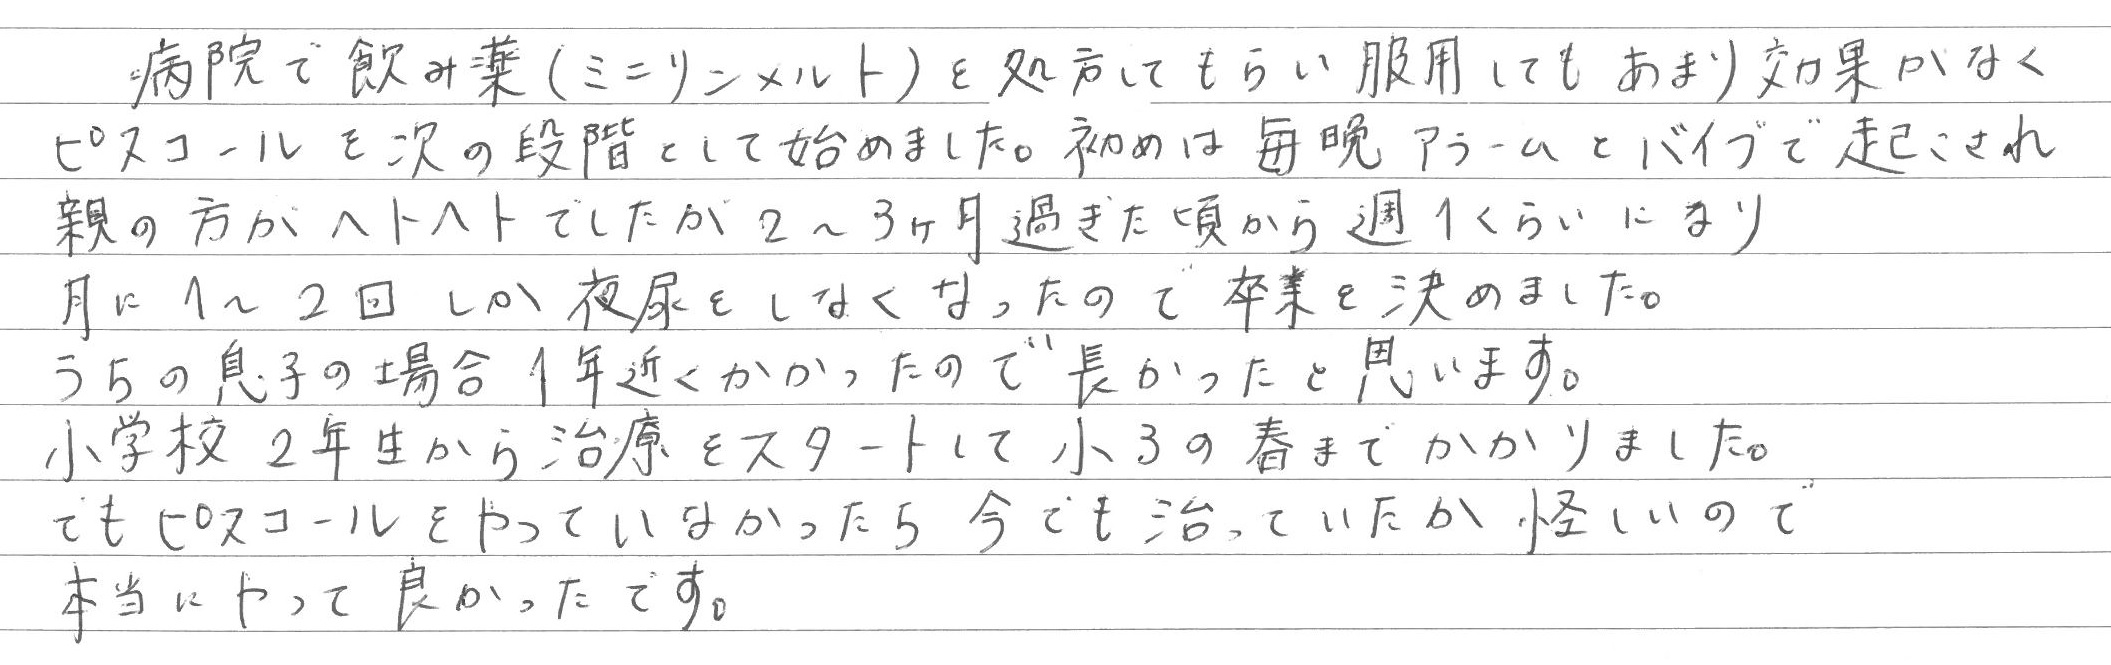 病院で飲み薬(ミニリンメルト)を処方してもらい服用してもあまり効果がなく
ピスコールを次の段階として始めました。初めは毎晩アラームとバイブで起こされ
親の方がヘトヘトでしたが2〜3ヶ月過ぎた頃から週1くらいになり
月に1〜2回しか夜尿をしなくなったので卒業を決めました。
うちの息子の場合1年近くかかったので長かったと思います。
小学校2年生から治療をスタートして小3の春までかかりました。
でもピスコールをやっていなかったら今でも治っていたか怪しいので
本当にやって良かったです。